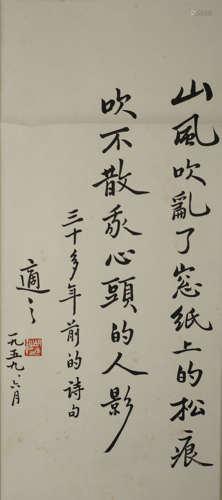 山風吹亂了窓紙上的松痕
吹不散我心頭的人影
三十多年前的詩句
適之
一九五九、六月